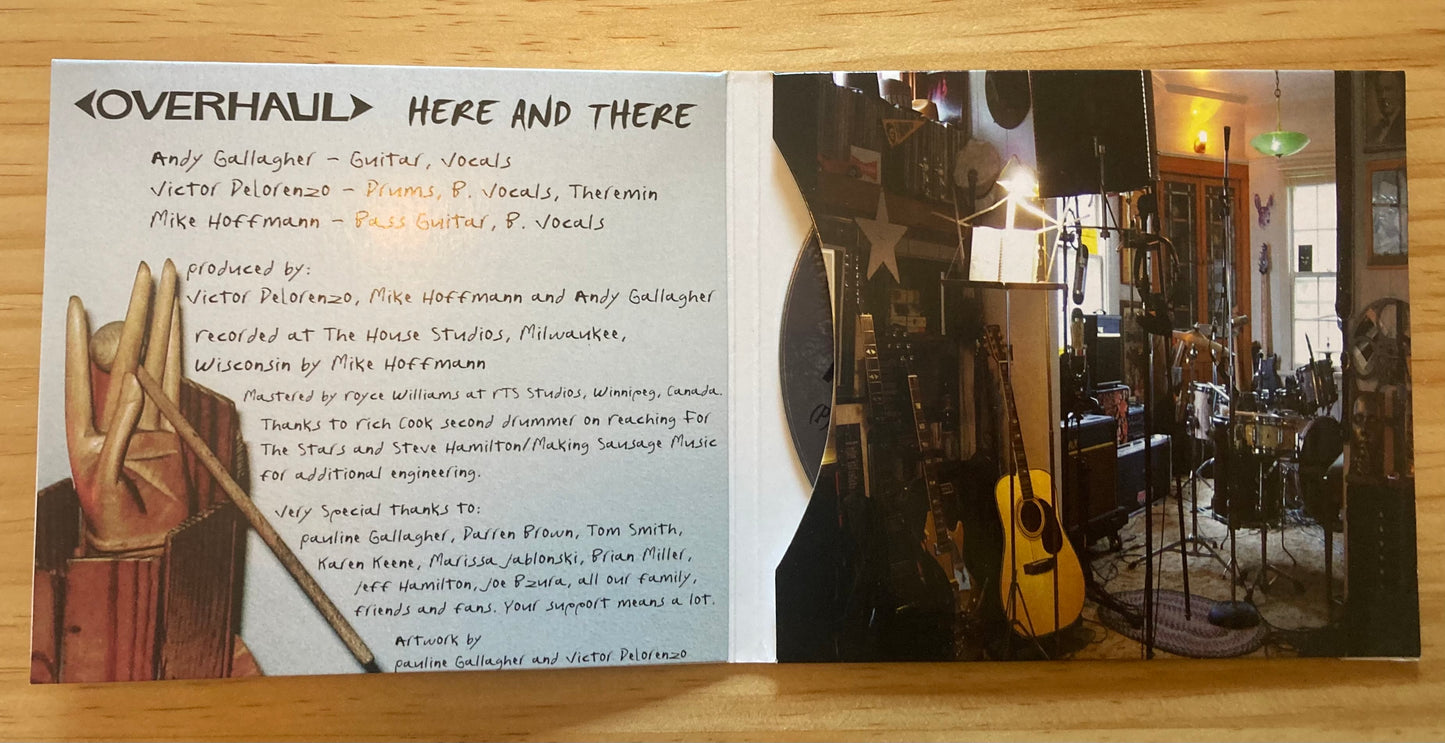 OVERHAUL HERE AND THERE
Andy Gallagher - Guitar, Vocals
Victor DeLorenzo - Drums, B. Vocals, Theremin
Mike Hoffmann - Bass Guitar, B. Vocals
produced by:
Victor DeLorenzo, Mike Hoffmann and Andy Gallagher
recorded at The House Studios, Milwaukee,
Wisconsin by Mike Hoffmann
Mastered by royce Williams at rTS Studios, Winnipeg, Canada.
Thanks to rich Cook second drummer on reaching for
The Stars and Steve Hamilton/Making Sausage Music
for additional engineering.
Very Special thanks to:
pauline Gallagher, Darren Brown, Tom Smith,
Karen Keene, Marissa Jablonski, Brian Miller,
Jeff Hamilton, Joe Bzura, all our family,
friends and fans. Your support means a lot.
Artwork by
pauline Gallagher and Victor DeLorenzo